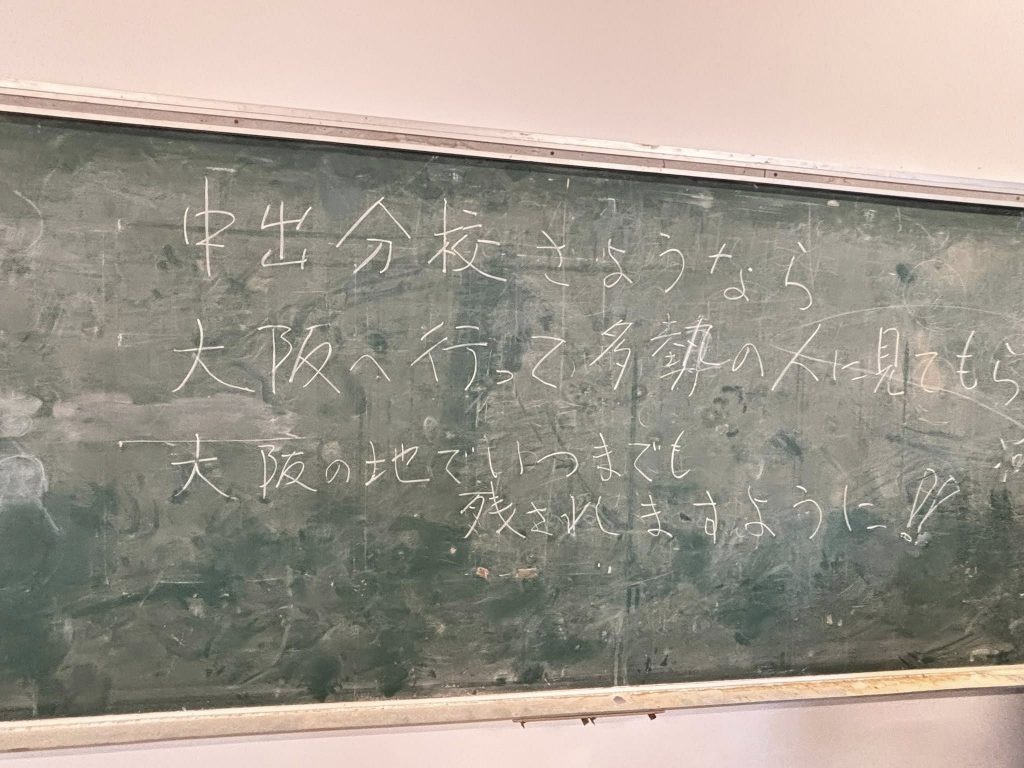 中出分校さようなら
大阪へ行って多勢の人に見てもら
大阪の地でいつまでも
残されますように!!